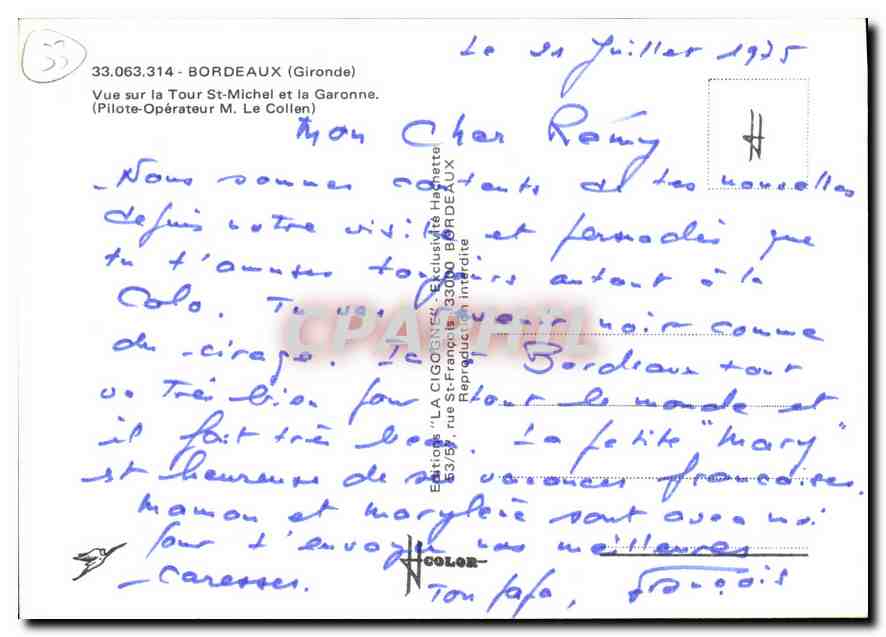 33
33.063.314 - BORDEAUX (Gironde)
Vue sur la Tour St-Michel et la Garonne.
(Pilote-Opérateur M. Le Collen)
Le 21 Juillet 1975
Mon Cher Rémy
Nous sommes contents de tes nouvelles
depuis notre visite et persuadés que
tu t'amuses toujours autant à la
Colo. Tu vas revenir noir comme
du cirage. Ici à Bordeaux tout
va Très bien pour tout le monde et
il fait très beau. La petite "Mary"
est heureuse de ses vacances françaises.
Maman et Marylène sont avec moi
pour t'envoyer nos meilleures
caresses.
Ton papa, François
Editions "LA CIGOGNE" - Exclusivité Hachette
53/57, rue St-François - 33000 BORDEAUX
Reproduction interdite
H COLOR
CPAPHIL